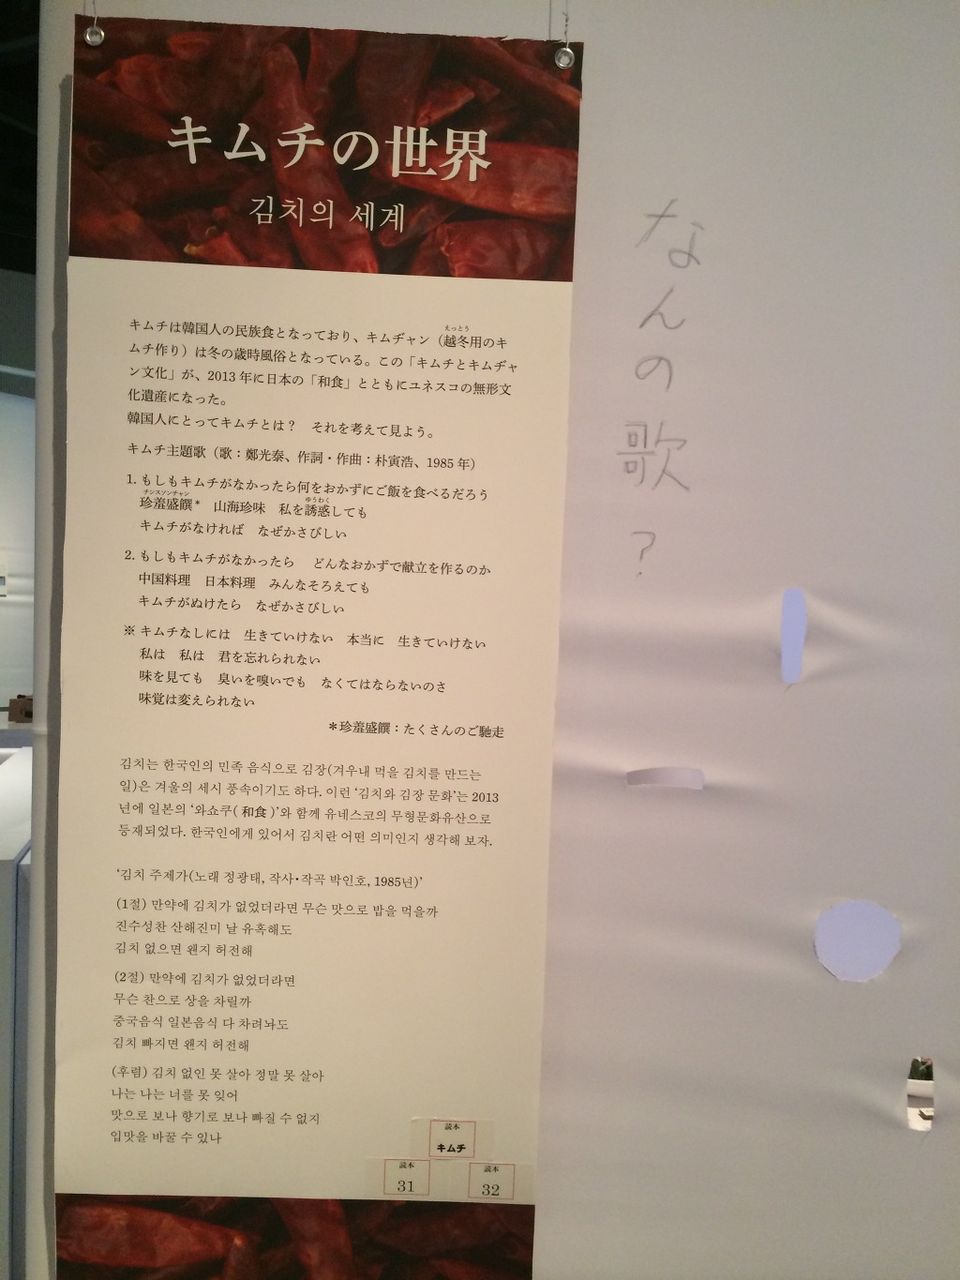 キムチの世界
김치의 세계
キムチは韓国人の民族食となっており、キムヂャン（越冬用のキ
えっとう
ムチ作り）は冬の歳時風俗となっている。この「キムチとキムヂャ
ン文化」が、2013年に日本の「和食」とともにユネスコの無形文
化遺産になった。
韓国人にとってキムチとは？　それを考えて見よう。
キムチ主題歌（歌：鄭光泰、作詞・作曲：朴寅浩、1985年）
1. もしもキムチがなかったら何をおかずにご飯を食べるだろう
チンスソンチャン
ゆうわく
珍羞盛饌*　山海珍味　私を誘惑しても
キムチがなければ　なぜかさびしい
2. もしもキムチがなかったら　どんなおかずで献立を作るのか
中国料理　日本料理　みんなそろえても
キムチがぬけたら　なぜかさびしい
※ キムチなしには　生きていけない　本当に　生きていけない
私は　私は　君を忘れられない
味を見ても　臭いを嗅いでも　なくてはならないのさ
味覚は変えられない
＊珍羞盛饌：たくさんのご馳走
김치는 한국인의 민족 음식으로 김장(겨우내 먹을 김치를 만드는
일)은 겨울의 세시 풍속이기도 하다. 이런 ‘김치와 김장 문화’는 2013
년에 일본의 ‘와쇼쿠( 和食 )’와 함께 유네스코의 무형문화유산으로
등재되었다. 한국인에게 있어서 김치란 어떤 의미인지 생각해 보자.
‘김치 주제가(노래 정광태, 작사·작곡 박인호, 1985년)’
(1절) 만약에 김치가 없었더라면 무슨 맛으로 밥을 먹을까
진수성찬 산해진미 날 유혹해도
김치 없으면 왠지 허전해
(2절) 만약에 김치가 없었더라면
무슨 찬으로 상을 차릴까
중국음식 일본음식 다 차려놔도
김치 빠지면 왠지 허전해
(후렴) 김치 없인 못 살아 정말 못 살아
나는 나는 너를 못 잊어
맛으로 보나 향기로 보나 빠질 수 없지
입맛을 바꿀 수 있나
読本
キムチ
読本
31
読本
32
なんの歌？